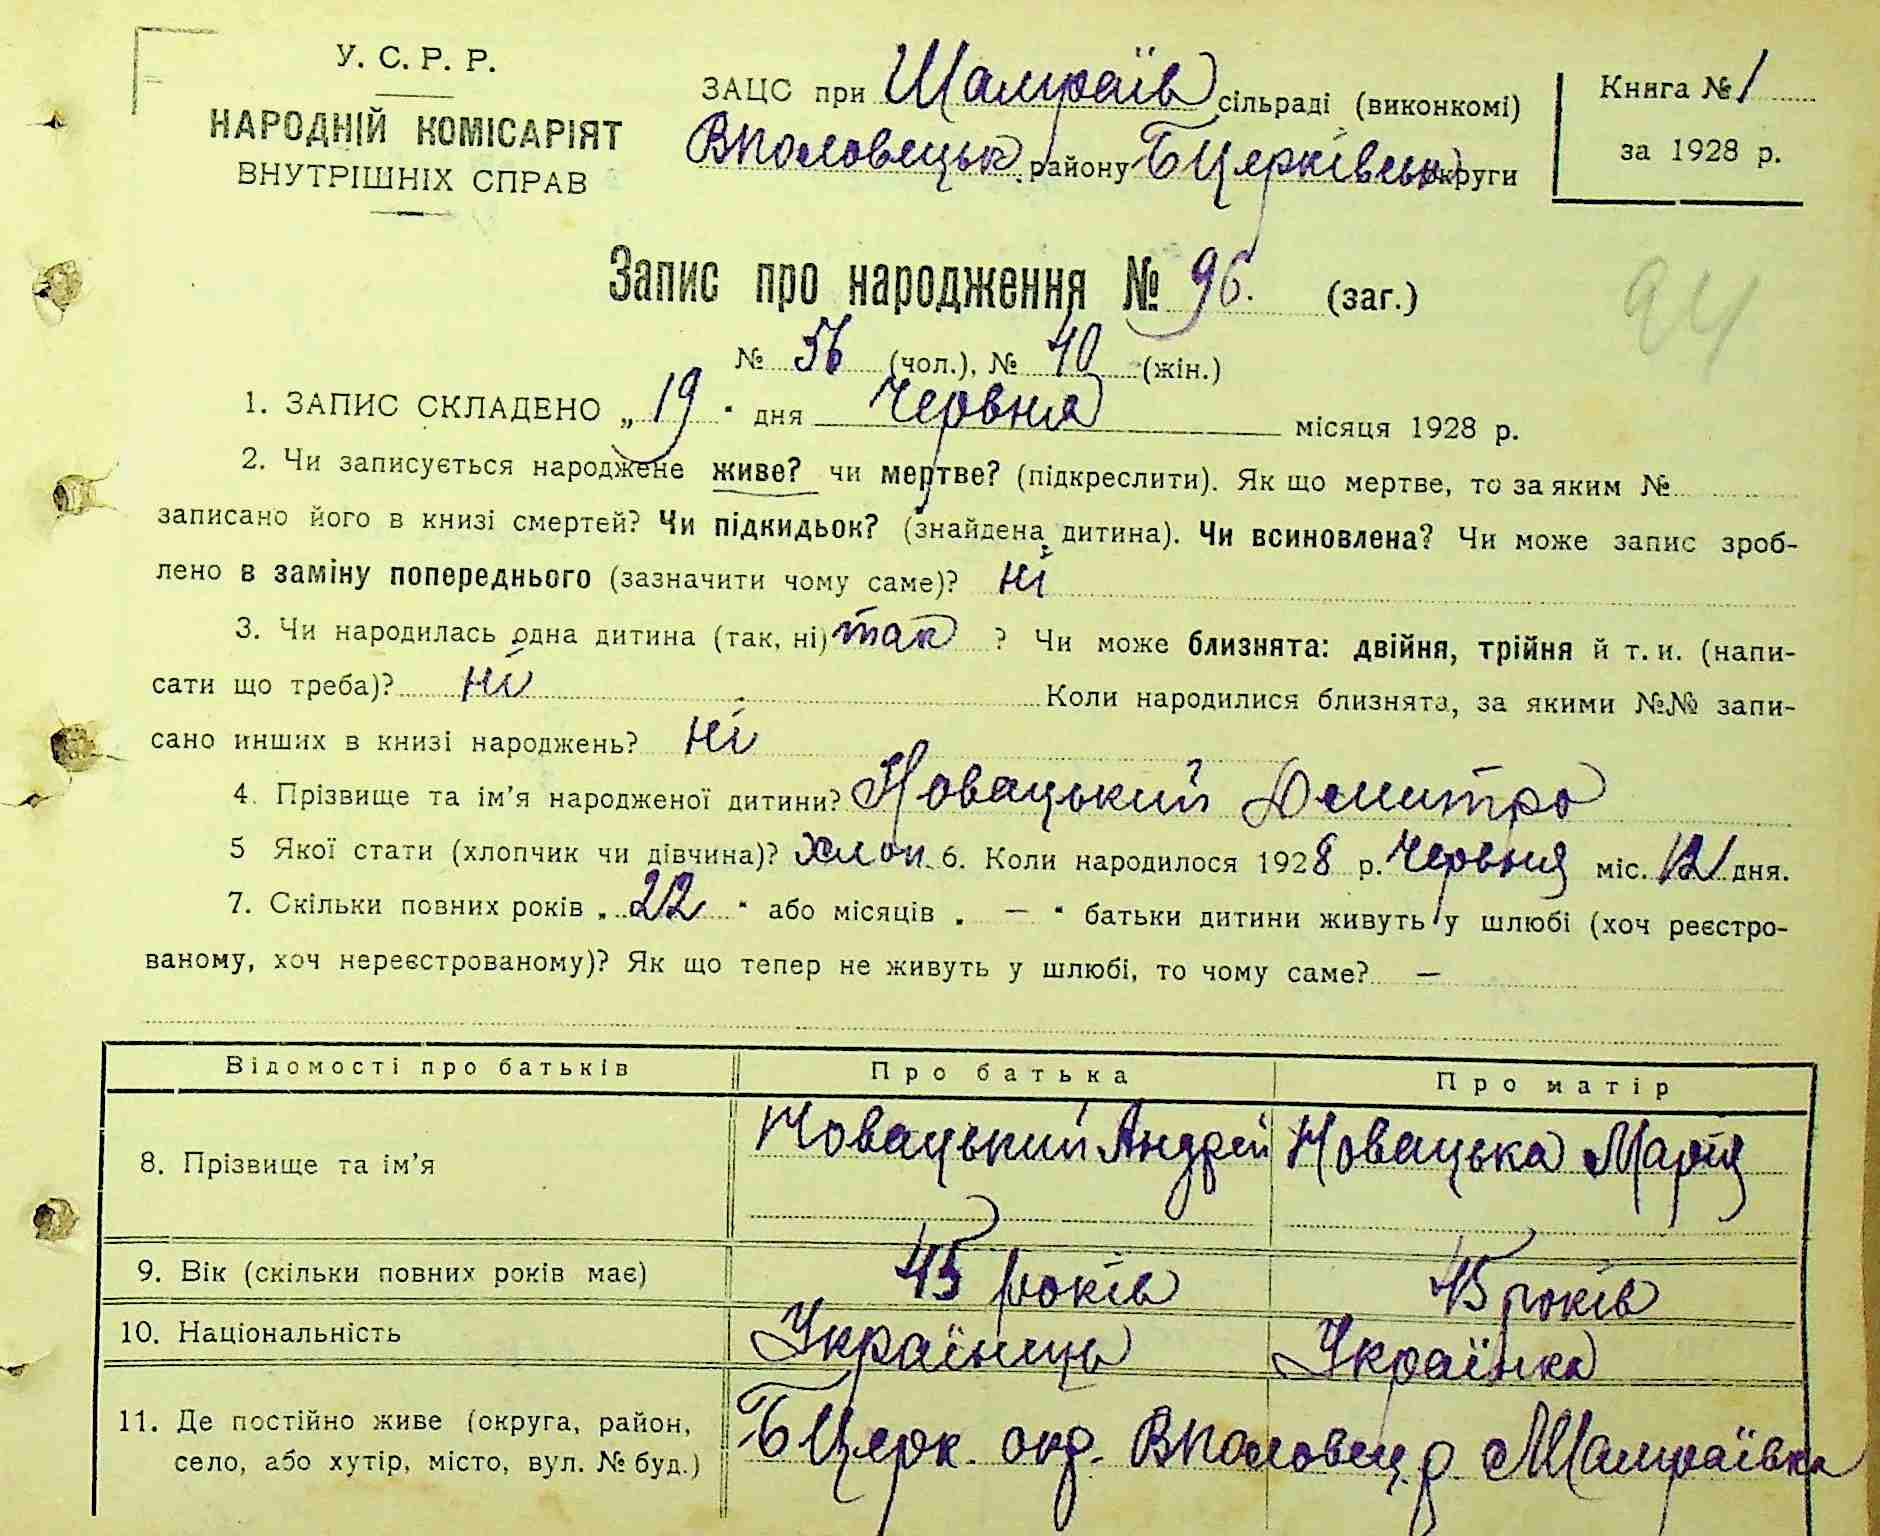 У. С. Р. Р.
НАРОДНІЙ КОМІСАРІЯТ
ВНУТРІШНІХ СПРАВ
ЗАЦС при Шамраїв сільраді (виконкомі)
ВПоловецьк. району БЦерківськ округи
Книга № 1
за 1928 р.
Запис про народження № 96. (заг.)
94
№ 56 (чол.), № 40 (жін.)
1. ЗАПИС СКЛАДЕНО „ 19 " дня Червня місяця 1928 р.
2. Чи записується народжене живе? чи мертве? (підкреслити). Як що мертве, то за яким №
записано його в книзі смертей? Чи підкидьок? (знайдена дитина). Чи всиновлена? Чи може запис зроб-
лено в заміну попереднього (зазначити чому саме)? ні
3. Чи народилась одна дитина (так, ні) так ? Чи може близнята: двійня, трійня й т. и. (напи-
сати що треба)? ні Коли народилися близнята, за якими №№ запи-
сано инших в книзі народжень? ні
4. Прізвище та ім'я народженої дитини? Новацький Дмитро
5 Якої стати (хлопчик чи дівчина)? хлоп. 6. Коли народилося 1928 р. Червня міс. 12 дня.
7. Скільки повних років „ 22 " або місяців „ — " батьки дитини живуть у шлюбі (хоч реєстро-
ваному, хоч нереєстрованому)? Як що тепер не живуть у шлюбі, то чому саме? —
Відомості про батьків Про батька Про матір
8. Прізвище та ім'я Новацький Андрей Новацька Марія
9. Вік (скільки повних років має) 45 років 45 років
10. Національність Українець Українка
11. Де постійно живе (округа, район,
село, або хутір, місто, вул. № буд.) БЦерк. окр. ВПоловец. р. Шамраївка